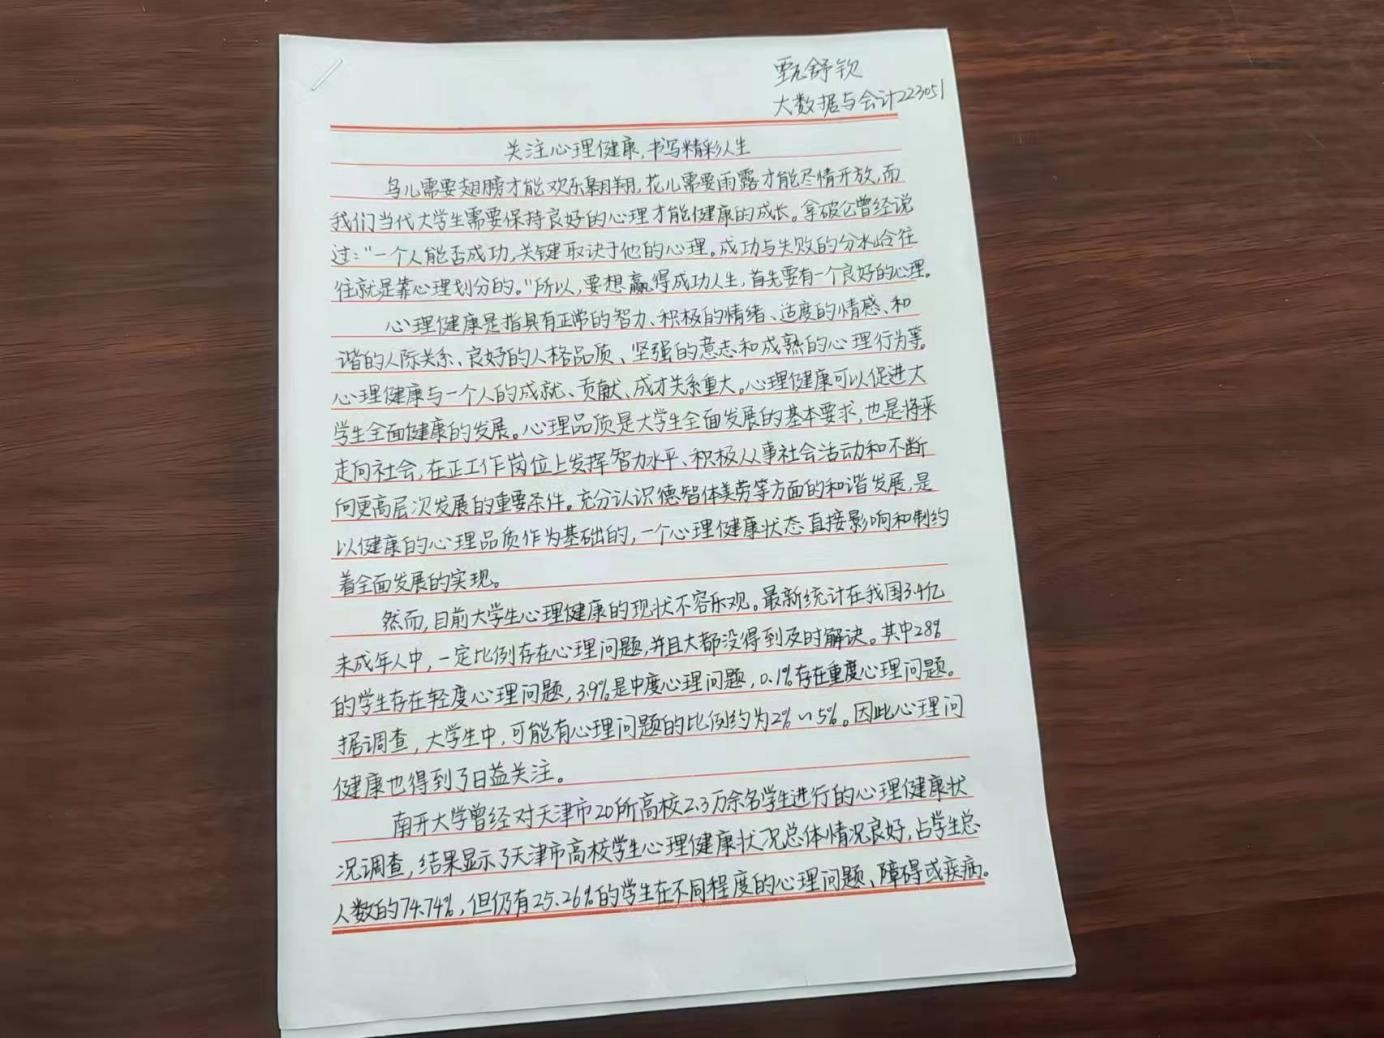 甄舒钦
大数据与会计223051
关注心理健康,书写精彩人生
鸟儿需要翅膀才能欢乐翱翔,花儿需要雨露才能尽情开放,而
我们当代大学生需要保持良好的心理才能健康的成长。拿破仑曾经说
过:"一个人能否成功,关键取决于他的心理。成功与失败的分水岭往
往就是靠心理划分的。"所以,要想赢得成功人生,首先要有一个良好的心理。
心理健康是指具有正常的智力、积极的情绪、适度的情感、和
谐的人际关系、良好的人格品质、坚强的意志和成熟的心理行为等。
心理健康与一个人的成就、贡献、成才关系重大。心理健康可以促进大
学生全面健康的发展。心理品质是大学生全面发展的基本要求,也是将来
走向社会,在正工作岗位上发挥智力水平、积极从事社会活动和不断
向更高层次发展的重要条件。充分认识德智体美劳等方面的和谐发展,是
以健康的心理品质作为基础的,一个心理健康状态直接影响和制约
着全面发展的实现。
然而,目前大学生心理健康的现状不容乐观。最新统计在我国3.4亿
未成年人中,一定比例存在心理问题,并且大都没得到及时解决。其中28%
的学生存在轻度心理问题,3.9%是中度心理问题,0.1%存在重度心理问题。
据调查,大学生中,可能有心理问题的比例约为2%~5%。因此心理问
健康也得到了日益关注。
南开大学曾经对天津市20所高校2.3万余名学生进行的心理健康状
况调查,结果显示了天津市高校学生心理健康状况总体情况良好,占学生总
人数的74.74%,但仍有25.26%的学生在不同程度的心理问题、障碍或疾病。